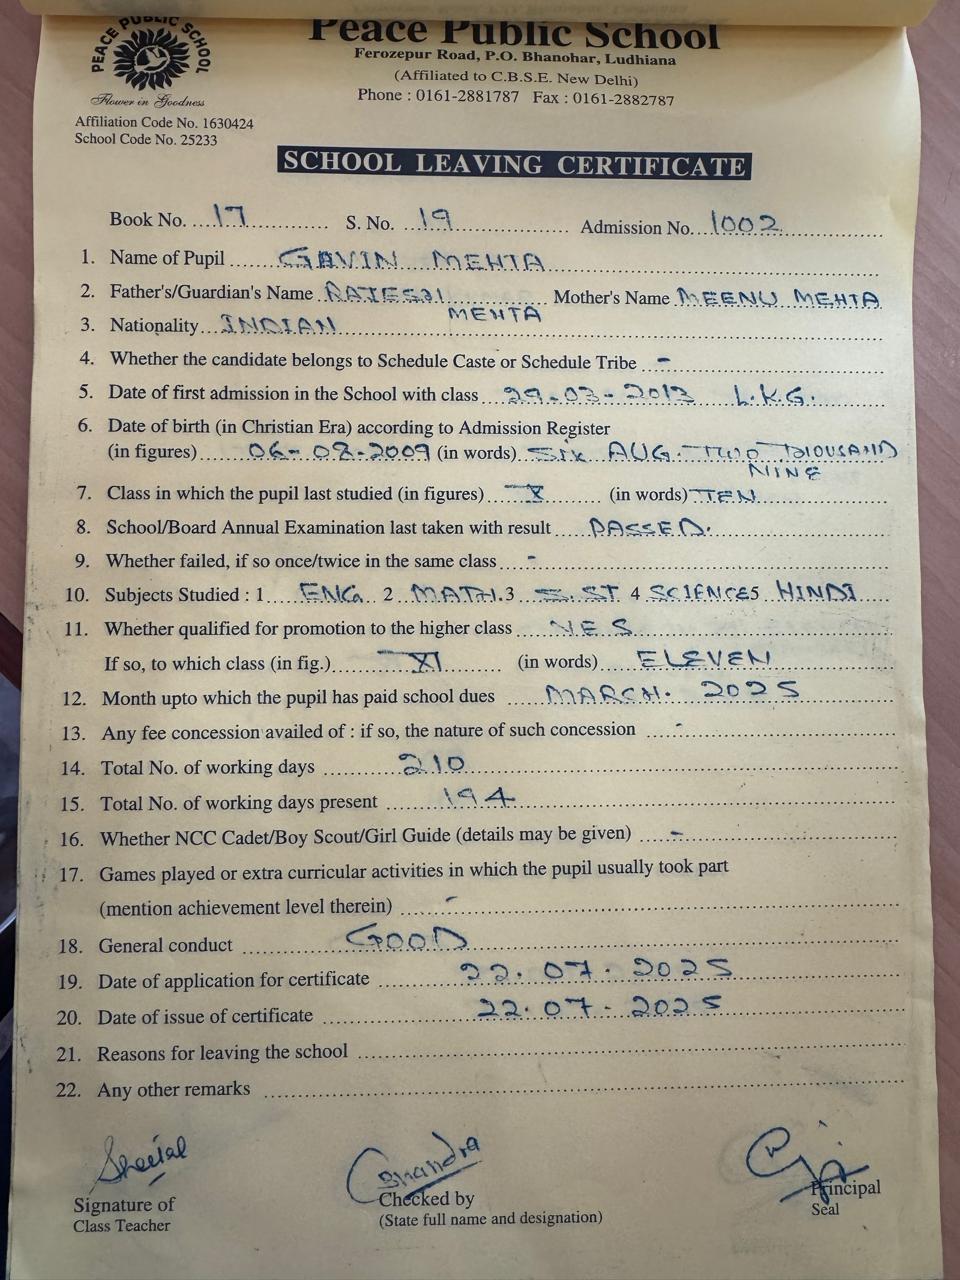 PEACE PUBLIC SCHOOL
Flower in Goodness
Affiliation Code No. 1630424
School Code No. 25233
Peace Public School
Ferozepur Road, P.O. Bhanohar, Ludhiana
(Affiliated to C.B.S.E. New Delhi)
Phone : 0161-2881787 Fax : 0161-2882787
SCHOOL LEAVING CERTIFICATE
Book No. 17 S. No. 19 Admission No. 1002
1. Name of Pupil GAVIN MEHTA
2. Father's/Guardian's Name RAJESH MEHTA Mother's Name MEENU MEHTA
3. Nationality INDIAN
4. Whether the candidate belongs to Schedule Caste or Schedule Tribe -
5. Date of first admission in the School with class 29-03-2013 L.K.G.
6. Date of birth (in Christian Era) according to Admission Register
(in figures) 06-08-2009 (in words) SIX AUG. TWO THOUSAND
NINE
7. Class in which the pupil last studied (in figures) X (in words) TEN
8. School/Board Annual Examination last taken with result PASSED.
9. Whether failed, if so once/twice in the same class -
10. Subjects Studied : 1 ENG. 2 MATH. 3 S.ST 4 SCIENCE 5 HINDI
11. Whether qualified for promotion to the higher class YES
If so, to which class (in fig.) XI (in words) ELEVEN
12. Month upto which the pupil has paid school dues MARCH. 2025
13. Any fee concession availed of : if so, the nature of such concession -
14. Total No. of working days 210
15. Total No. of working days present 194
16. Whether NCC Cadet/Boy Scout/Girl Guide (details may be given) -
17. Games played or extra curricular activities in which the pupil usually took part
(mention achievement level therein) -
18. General conduct GOOD
19. Date of application for certificate 22.07.2025
20. Date of issue of certificate 22.07.2025
21. Reasons for leaving the school
22. Any other remarks
Chandra
Signature of
Class Teacher
Checked by
(State full name and designation)
Principal
Seal